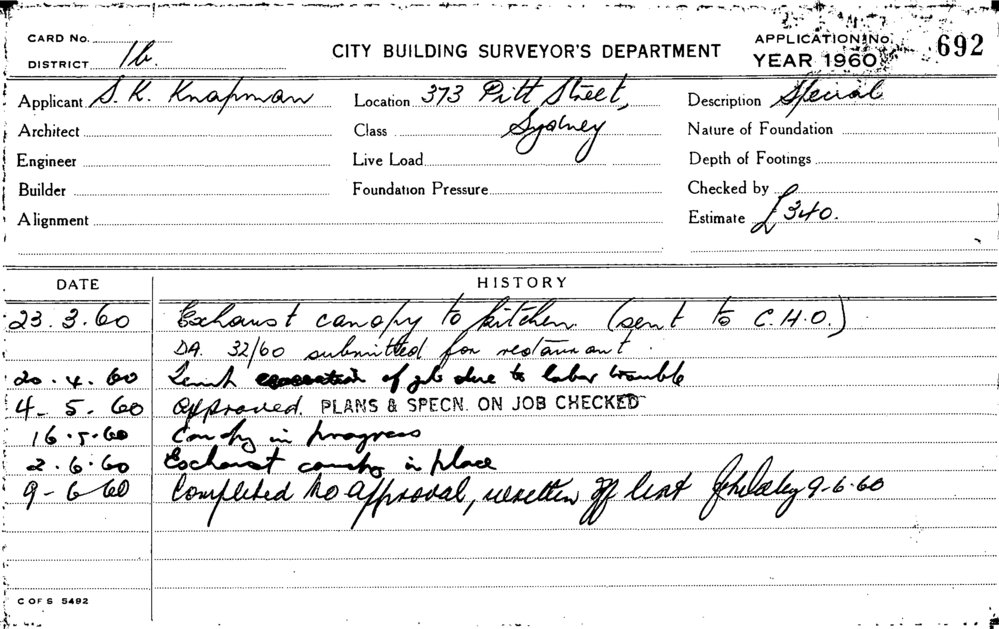 CARD No.
DISTRICT 1b.
CITY BUILDING SURVEYOR'S DEPARTMENT
APPLICATION No. 692
YEAR 1960
Applicant S. K. Knapman
Location 373 Pitt Street,
Sydney
Description Special
Architect
Class
Nature of Foundation
Engineer
Live Load
Depth of Footings
Builder
Foundation Pressure
Checked by
Alignment
Estimate £340.
DATE HISTORY
23.3.60 Exhaust canopy to kitchen. (sent to C.H.O.)
DA. 32/60 submitted for restaurant.
20.4.60 of job due to labor trouble
4-5-60 Approved. PLANS & SPECN. ON JOB CHECKED
16.5.60 Canopy in progress
2.6.60 Exhaust canopy in place
9-6-60 Completed to approval, written off list 9-6-60
C OF S 5492